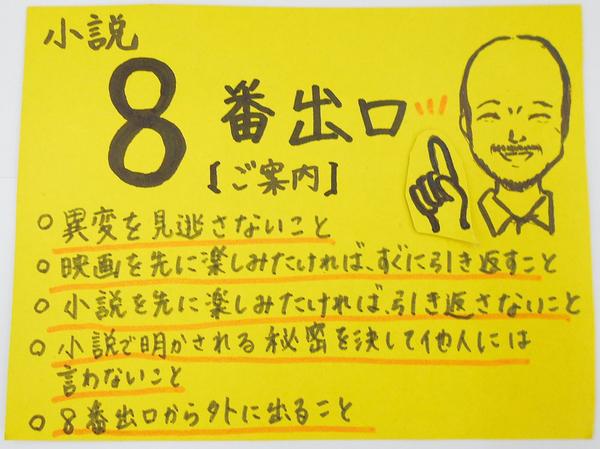 小説
8番出口
【ご案内】
○異変を見逃さないこと
○映画を先に楽しみたければ、すぐに引き返すこと
○小説を先に楽しみたければ、引き返さないこと
○小説で明かされる秘密を決して他人には
言わないこと
○8番出口から外に出ること